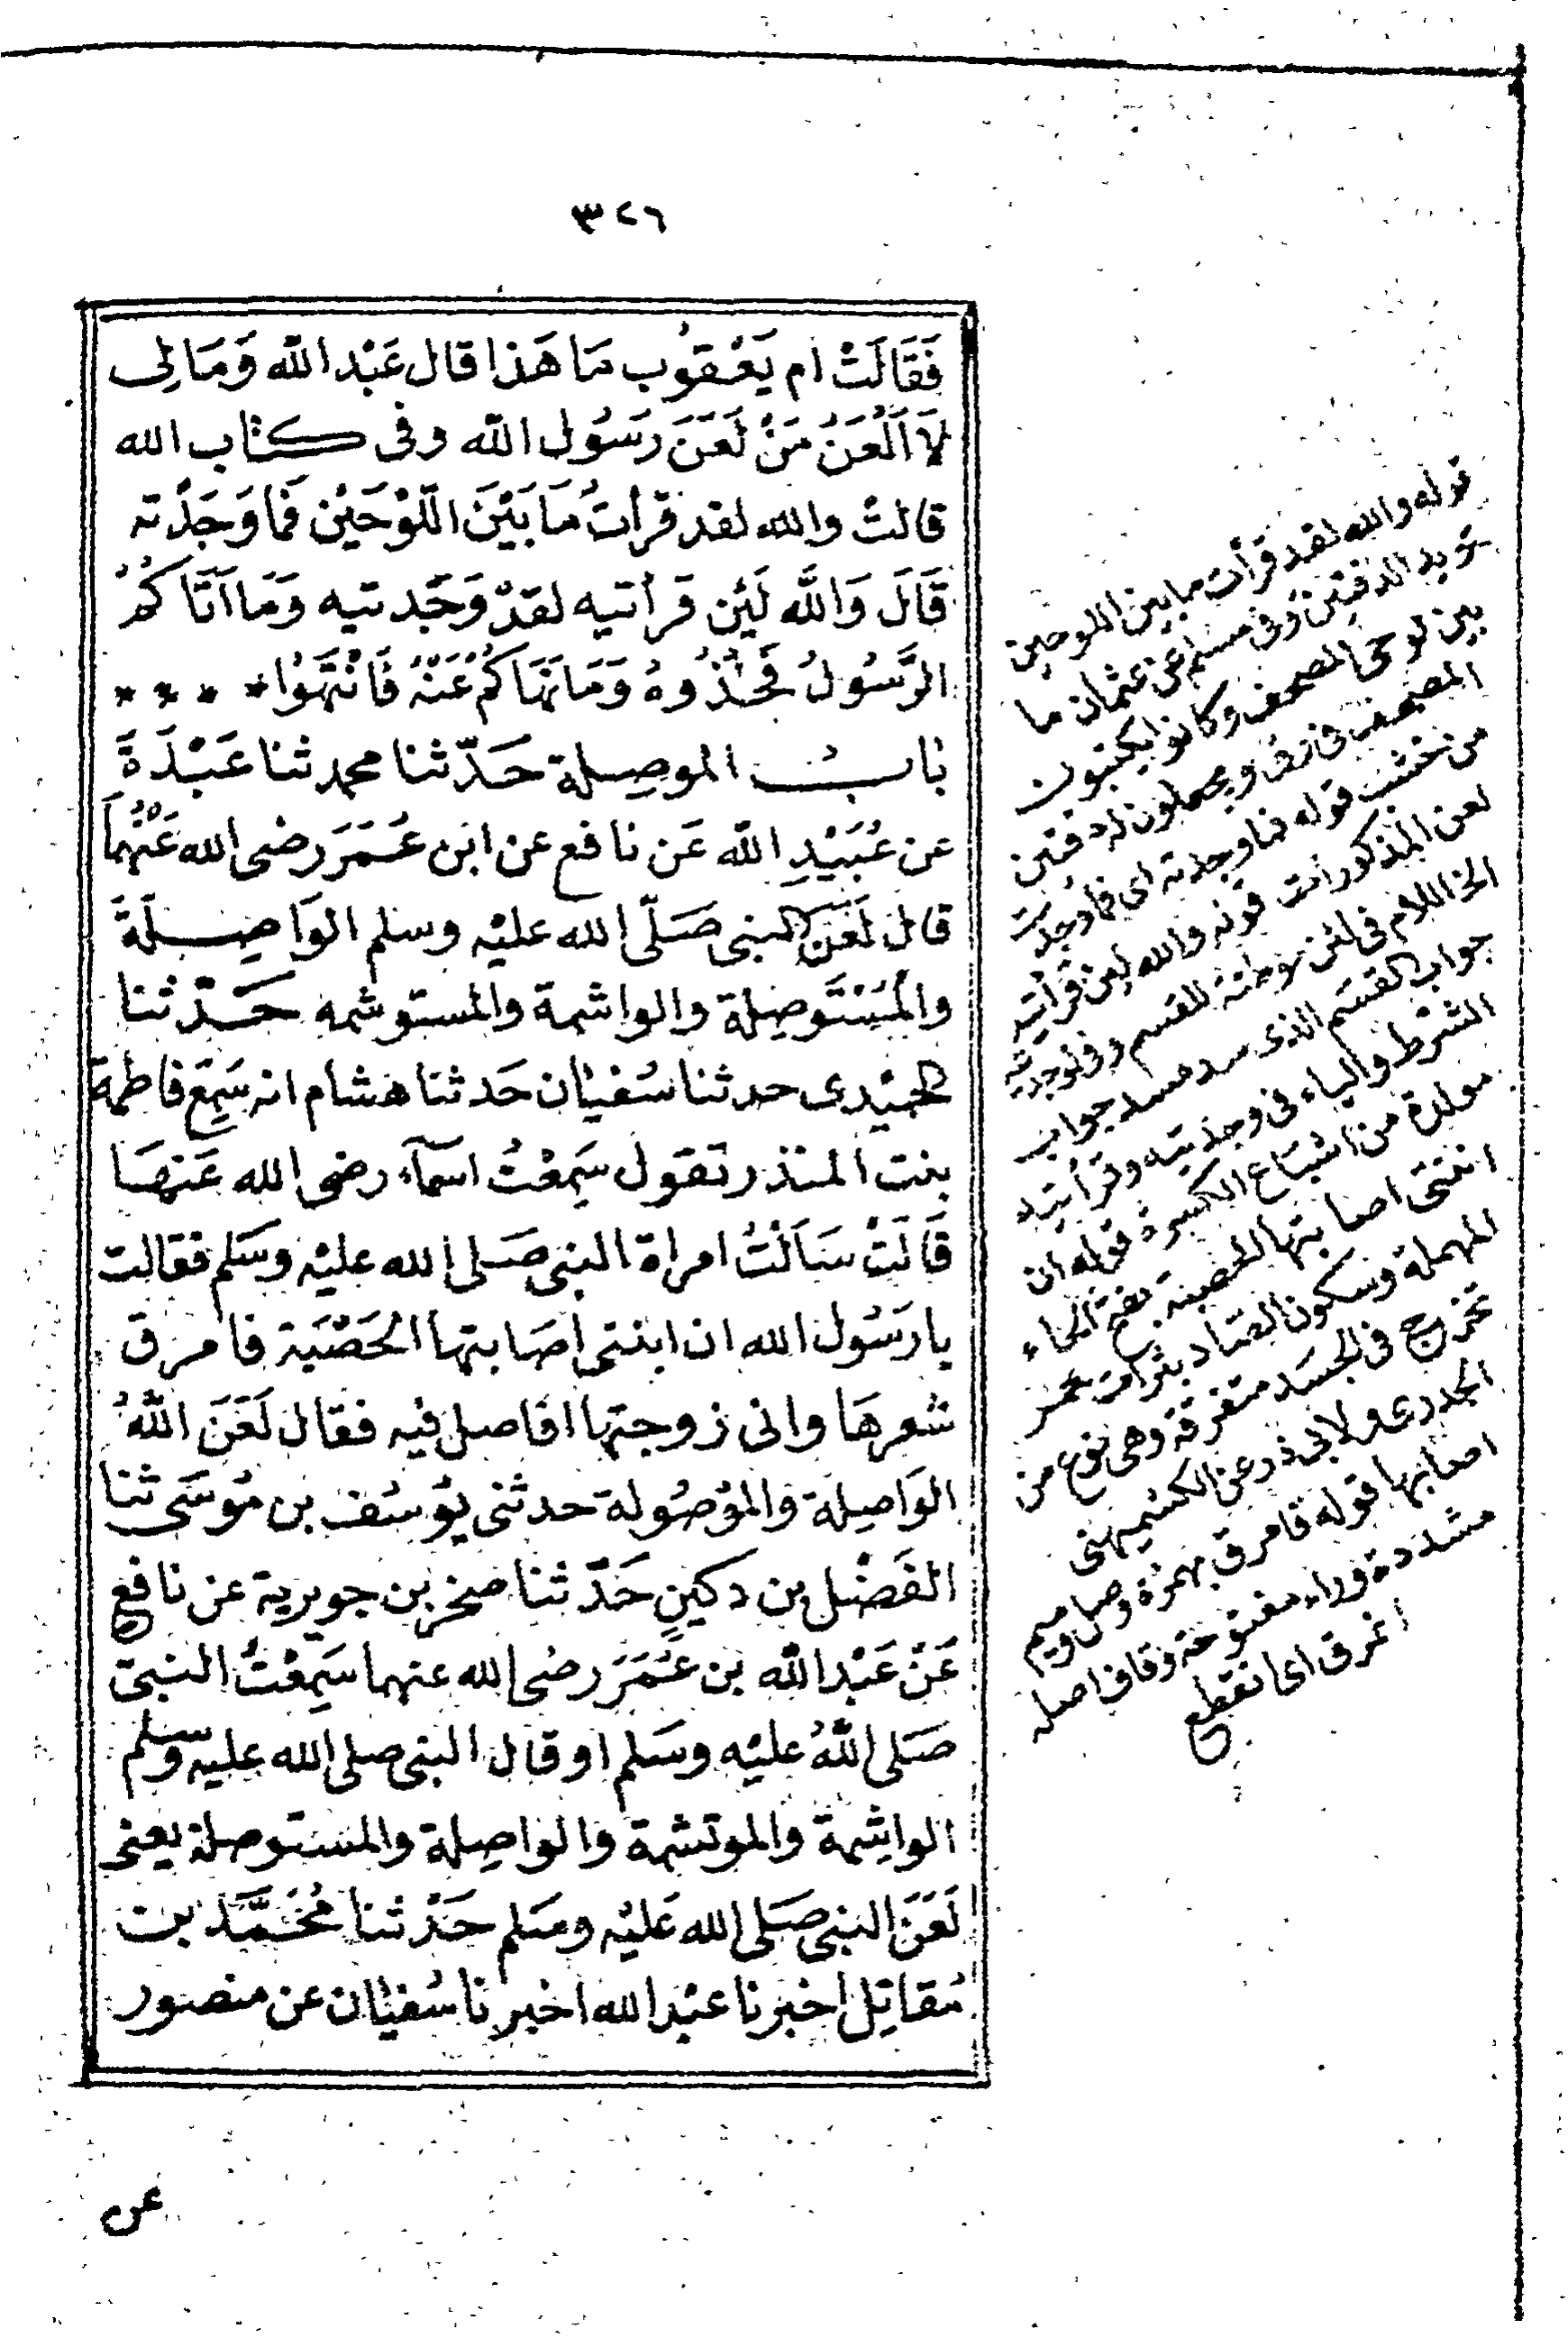 ٣٢٦
فَقَالَتْ ام يَعْقوُب مَا هَذا قال عَبْد الله وَمَا لِى
لاَ اَلْعَنُ مَنْ لَعَنَ رَسُول الله وفى كتاب الله
قالتْ والله لقد قرأتُ مَا بَيْنَ اللّوْحَيْن فمَا وَجَدْته
قَالَ وَاللَّه لَئِن قرأتيه لقدْ وَجَدتيه وَمَا آتَاكُمُ
الرَّسُولُ فَخُذُوهُ وَمَا نَهَاكُمْ عَنْهُ فَانْتَهُوا * * * *
بابُ الموصِلة حَدّثنا محمد ثنا عَبْدَةَ
عن عُبَيْدِ الله عَن نافع عن ابن عُمَرَ رضى الله عَنْهُمَا
قال لَعَنَ النبى صَلّى الله عليْه وسلم الوَاصِلَةَ
والمُسْتَوصِلة والواشمة والمستوشمه حَدّثنا
الحمَيْدى حدثنا سُفيٰان حَدثنا هشام انه سَمِعَ فاطمة
بنت المنذر تقول سَمِعْتُ اسمآء رضى الله عَنهَا
قَالَتْ سَاَلَتُ امراة النبى صَلى الله عليْه وسَلم فقالت
يا رسُول الله ان ابنتى اصَابتها الحَصْبَة فامرق
شعرهَا وانى زوجتها افاصل فيه فقال لَعَنَ اللّٰهُ
الوَاصِلة والموْصُولة حدثنى يوُسُف بن موُسَى ثنا
الفَضْل بن دكينٍ حَدّثنا صخر بن جويرية عن نافع
عَنْ عَبْد الله بن عُمَرَ رضى الله عنهما سَمِعْتُ النبىّ
صَلى اللّٰهُ عليْه وسَلم او قال النبى صلى الله عليه وسلم
الواشِمة والموتشمة والواصِلة والمستوصلة يعنى
لَعَنَ النبى صَلى الله عَليْه وسَلم حَدْثنا مُحَمَّد بن
مُقاتِل اخبرنا عبْد الله اخبرنا سُفيٰان عن منصور
عن
قوله والله لقد قرأت ما بين اللوحين
يريد الدفتين وفى مسلم عن عثمان ما
بين لوحى المصحف وكانوا يكتبون
المصحف فى رق ويجعلون له دفتين
من خشب قوله فما وجدته اى فما وجدت
لعن المذكورات قوله والله لئن قرأتيه
الخ اللام فى لئن موطئة للقسم وفى لوجدتيه
جواب القسم الذى سد مسد جواب
الشرط والياء فى وجدتيه وقرأتيه
مولدة من اشباع الكسرة قوله ان
ابنتى اصابتها الحصبة بفتح الحاء
المهملة وسكون الصاد بثرات حمر
تخرج فى الجسد متفرقة وهى نوع من
الجدرى ولابى ذر عن الكشميهنى
اصابها قوله فامرق بهمزة وصل وميم
مشددة وراء مفتوحة وقاف اصله
انمرق اى انقطع